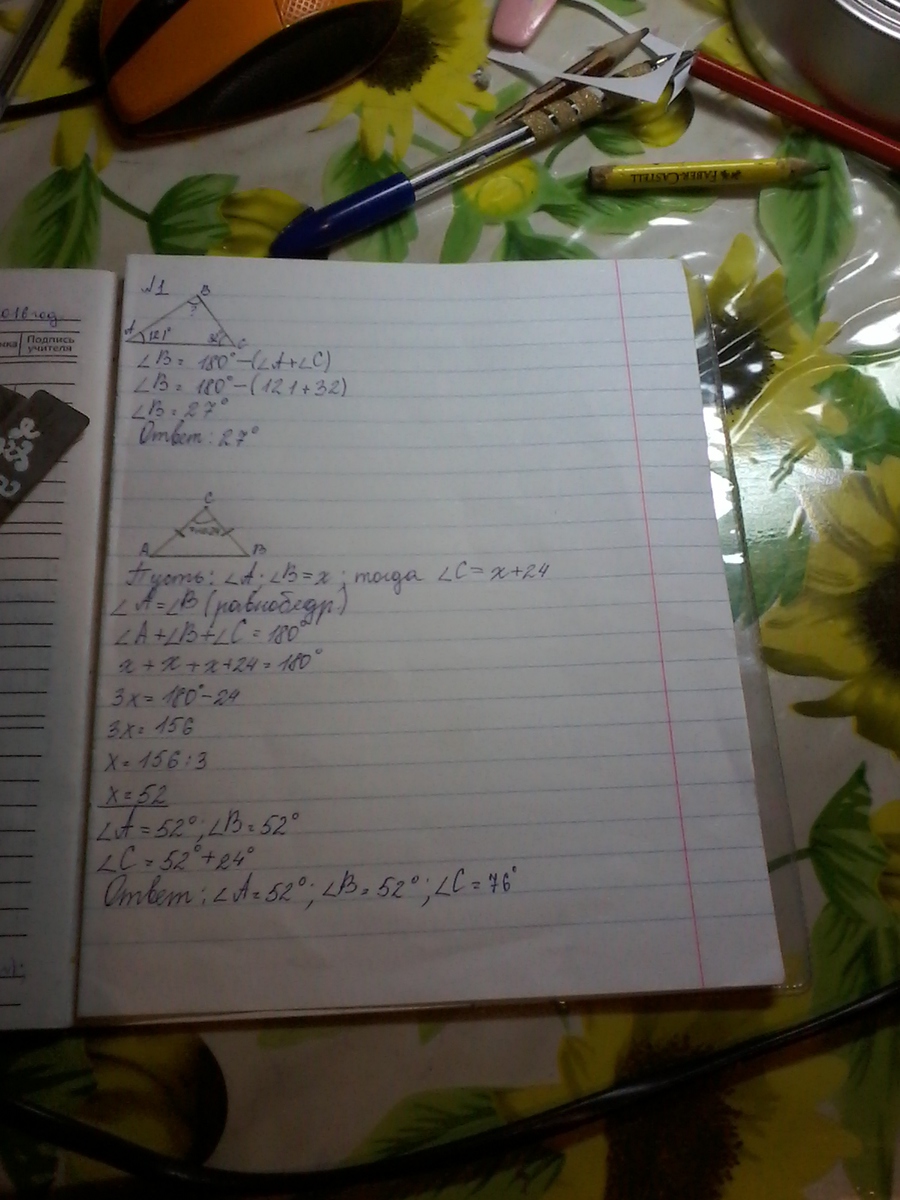 FABER-CASTELL
018 год.
Подпись
учителя
№1
B
?
A 121° 32° C
∠B = 180° - (∠A+∠C)
∠B = 180° - (121+32)
∠B = 27°
Ответ: 27°
C
A B
Пусть: ∠A; ∠B = x; тогда ∠C = x+24
∠A = ∠B (равнобедр.)
∠A + ∠B + ∠C = 180°
x + x + x + 24 = 180°
3x = 180° - 24
3x = 156
x = 156 : 3
x = 52
∠A = 52°; ∠B = 52°
∠C = 52° + 24°
Ответ: ∠A = 52°; ∠B = 52°; ∠C = 76°